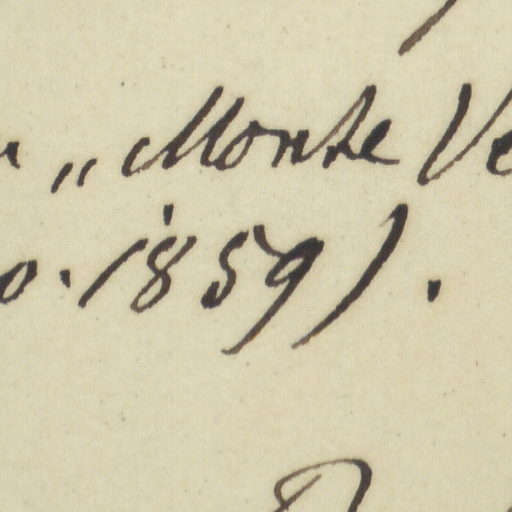 „Monte Ve
o. 1859).